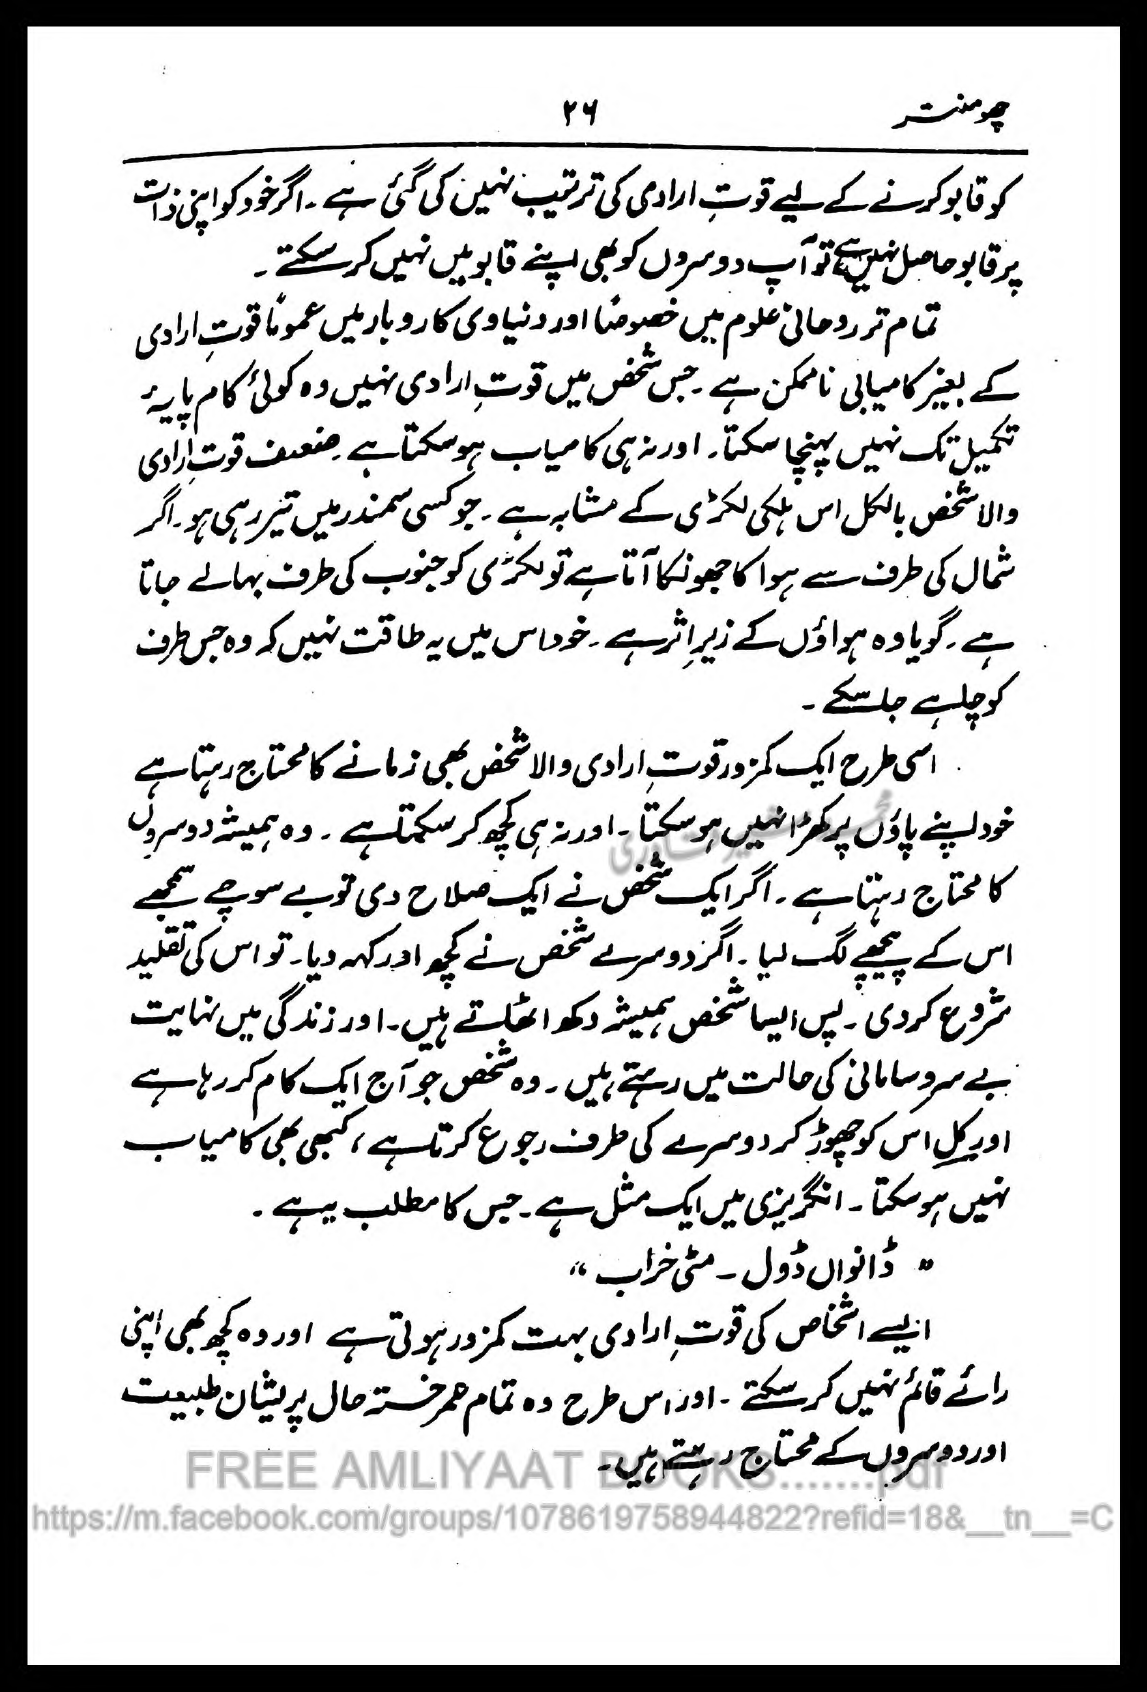 چھومنتر
۲۶
کو قابو کرنے کے لیے قوتِ ارادی کی ترتیب نہیں کی گئی ہے ۔ اگر خود کو اپنی ذات
پر قابو حاصل نہیں ہے تو آپ دوسروں کو بھی اپنے قابو میں نہیں کر سکتے ۔
تمام تر روحانی علوم میں خصوصاً اور دنیاوی کاروبار میں عموماً قوتِ ارادی
کے بغیر کامیابی ناممکن ہے ۔ جس شخص میں قوتِ ارادی نہیں وہ کوئی کام پایۂ
تکمیل تک نہیں پہنچا سکتا ۔ اور نہ ہی کامیاب ہو سکتا ہے ۔ ضعیف قوتِ ارادی
والا شخص بالکل اس ہلکی لکڑی کے مشابہ ہے ۔ جو کسی سمندر میں تیر رہی ہو ۔ اگر
شمال کی طرف سے ہوا کا جھونکا آتا ہے تو لکڑی کو جنوب کی طرف بہا لے جاتا
ہے ۔ گویا وہ ہواؤں کے زیرِ اثر ہے ۔ خود اس میں یہ طاقت نہیں کہ وہ جس طرف
کو چاہے جا سکے ۔
اسی طرح ایک کمزور قوتِ ارادی والا شخص بھی زمانے کا محتاج رہتا ہے
خود اپنے پاؤں پر کھڑا نہیں ہو سکتا ۔ اور نہ ہی کچھ کر سکتا ہے ۔ وہ ہمیشہ دوسروں
کا محتاج رہتا ہے ۔ اگر ایک شخص نے ایک صلاح دی تو بے سوچے سمجھے
اس کے پیچھے لگ لیا ۔ اگر دوسرے شخص نے کچھ اور کہہ دیا ۔ تو اس کی تقلید
شروع کر دی ۔ پس ایسا شخص ہمیشہ دکھ اٹھاتے ہیں ۔ اور زندگی میں نہایت
بے سرو سامانی کی حالت میں رہتے ہیں ۔ وہ شخص جو آج ایک کام کر رہا ہے
اور کل اس کو چھوڑ کر دوسرے کی طرف رجوع کرتا ہے ، کبھی بھی کامیاب
نہیں ہو سکتا ۔ انگریزی میں ایک مثل ہے ۔ جس کا مطلب یہ ہے ۔
" ڈانواں ڈول ۔ مٹی خراب "
ایسے اشخاص کی قوتِ ارادی بہت کمزور ہوتی ہے اور وہ کچھ بھی اپنی
رائے قائم نہیں کر سکتے ۔ اور اس طرح وہ تمام عمر خستہ حال پریشان طبیعت
اور دوسروں کے محتاج رہتے ہیں ۔
FREE AMLIYAAT BOOKS.......pdf
https://m.facebook.com/groups/1078619758944822?refid=18&__tn__=C